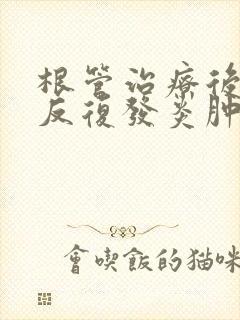 根管治療後
反復發炎肿
會喫飯的猫咪